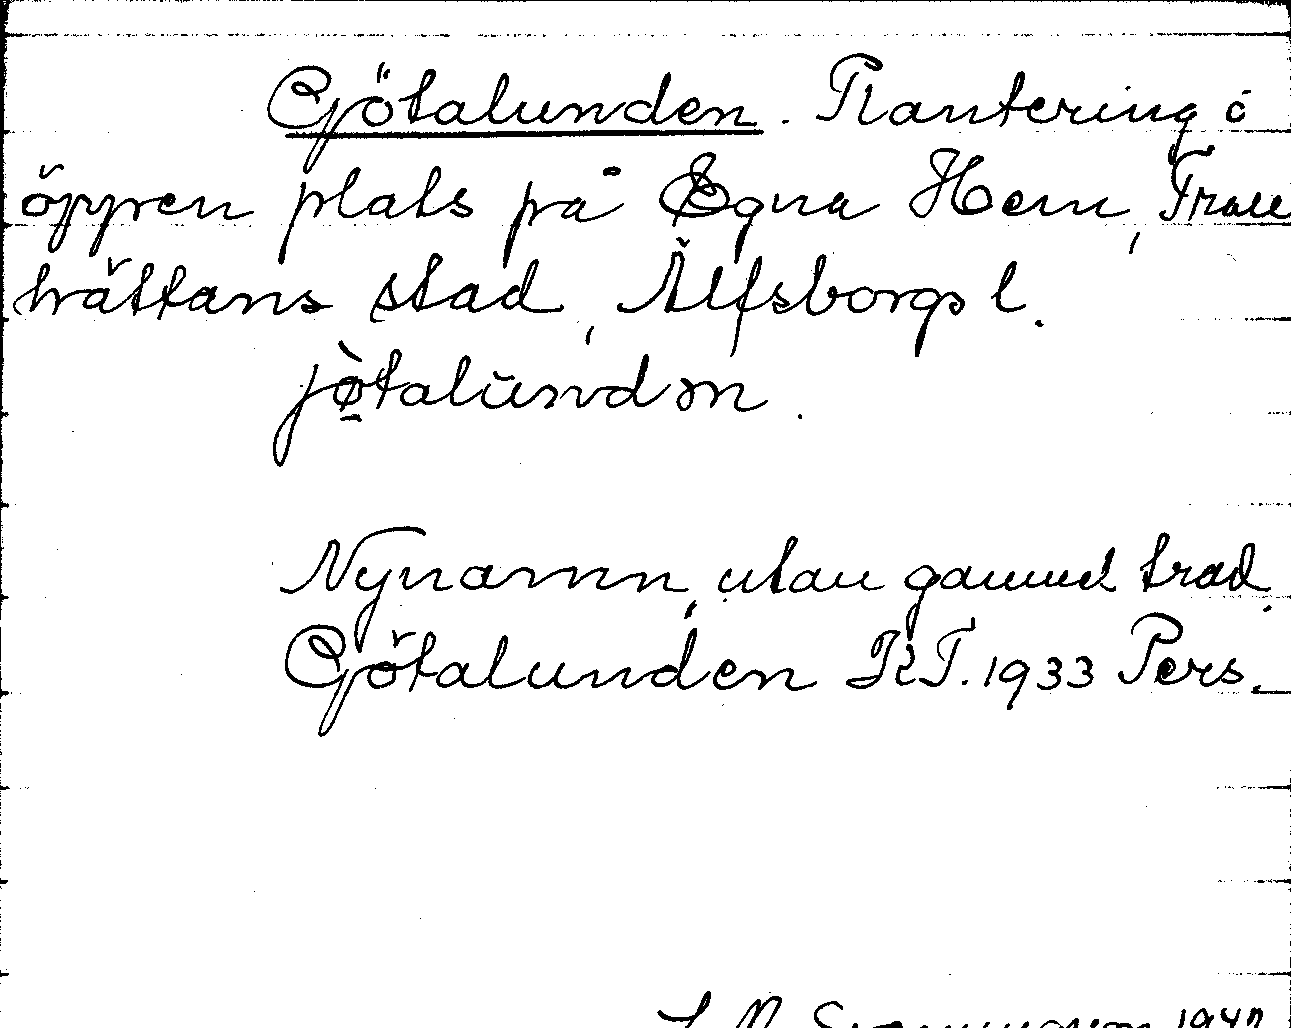 Götalunden. Plantering å
öppen plats på Egna Hem, Troll
hättans stad, Älfsborgs l.
jò̱talŭndən.
Nynamn, utan gammel trad.
Götalunden KT. 1933 Pers.
1942